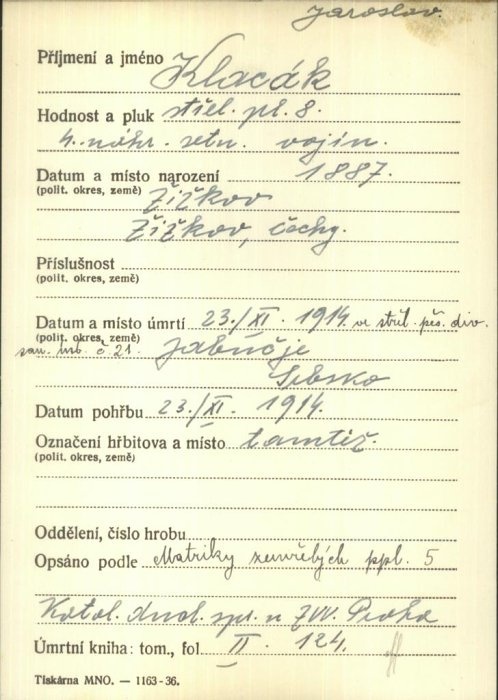 Jaroslav.
Příjmení a jméno Klacák
Hodnost a pluk střel. pl. 8.
4. náhr. setn. vojín.
Datum a místo narození 1887.
(polit. okres, země) Žižkov
Žižkov, Čechy.
Příslušnost
(polit. okres, země)
Datum a místo úmrtí 23./XI. 1914. ve střel. pěš. div.
(polit. okres, země)
san. úst. č. 21. Jabučje
Srbsko
Datum pohřbu 23./XI. 1914.
Označení hřbitova a místo tamtéž.
(polit. okres, země)
Oddělení, číslo hrobu
Opsáno podle Matriky zemřelých ppl. 5
Katol. duch. spr. u ZVV. Praha
Úmrtní kniha: tom., fol II. 124.
Tiskárna MNO. — 1163-36.